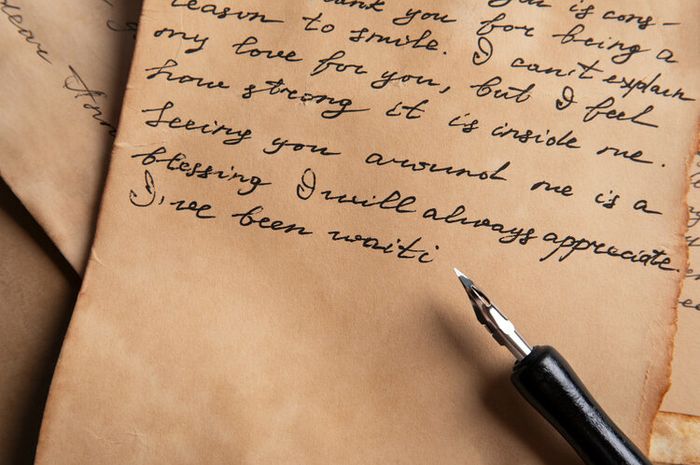 you is cons-
thank you for being a
reason to smile. I can't explain
my love for you, but I feel
how strong it is inside me.
Seeing you around me is a
blessing I will always appreciate.
I've been waiti
Dear Ann